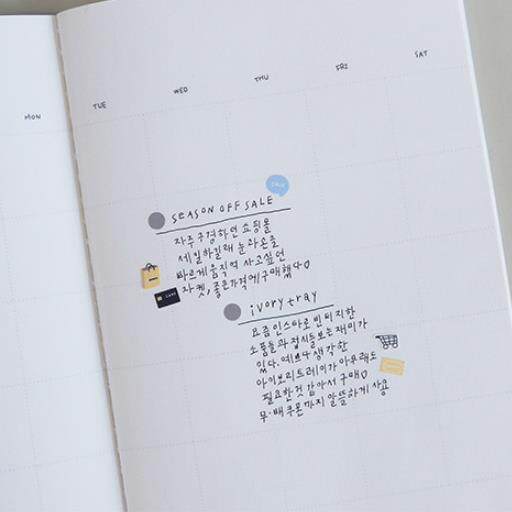 MON
TUE
WED
THU
FRI
SAT
SALE
SEASON OFF SALE
자주 구경하던 쇼핑몰
세일하길래 눈과 손을
빠르게 움직여 사고싶었던
자켓, 좋은가격에 구매했다
ivory tray
요즘 인스타로 빈티지한
소품들과 접시들 보는 재미가
있다. 예쁘다 생각한
아이보리 트레이가 아무래도
필요한것 같아서 구매
무·배 쿠폰까지 알뜰하게 사용